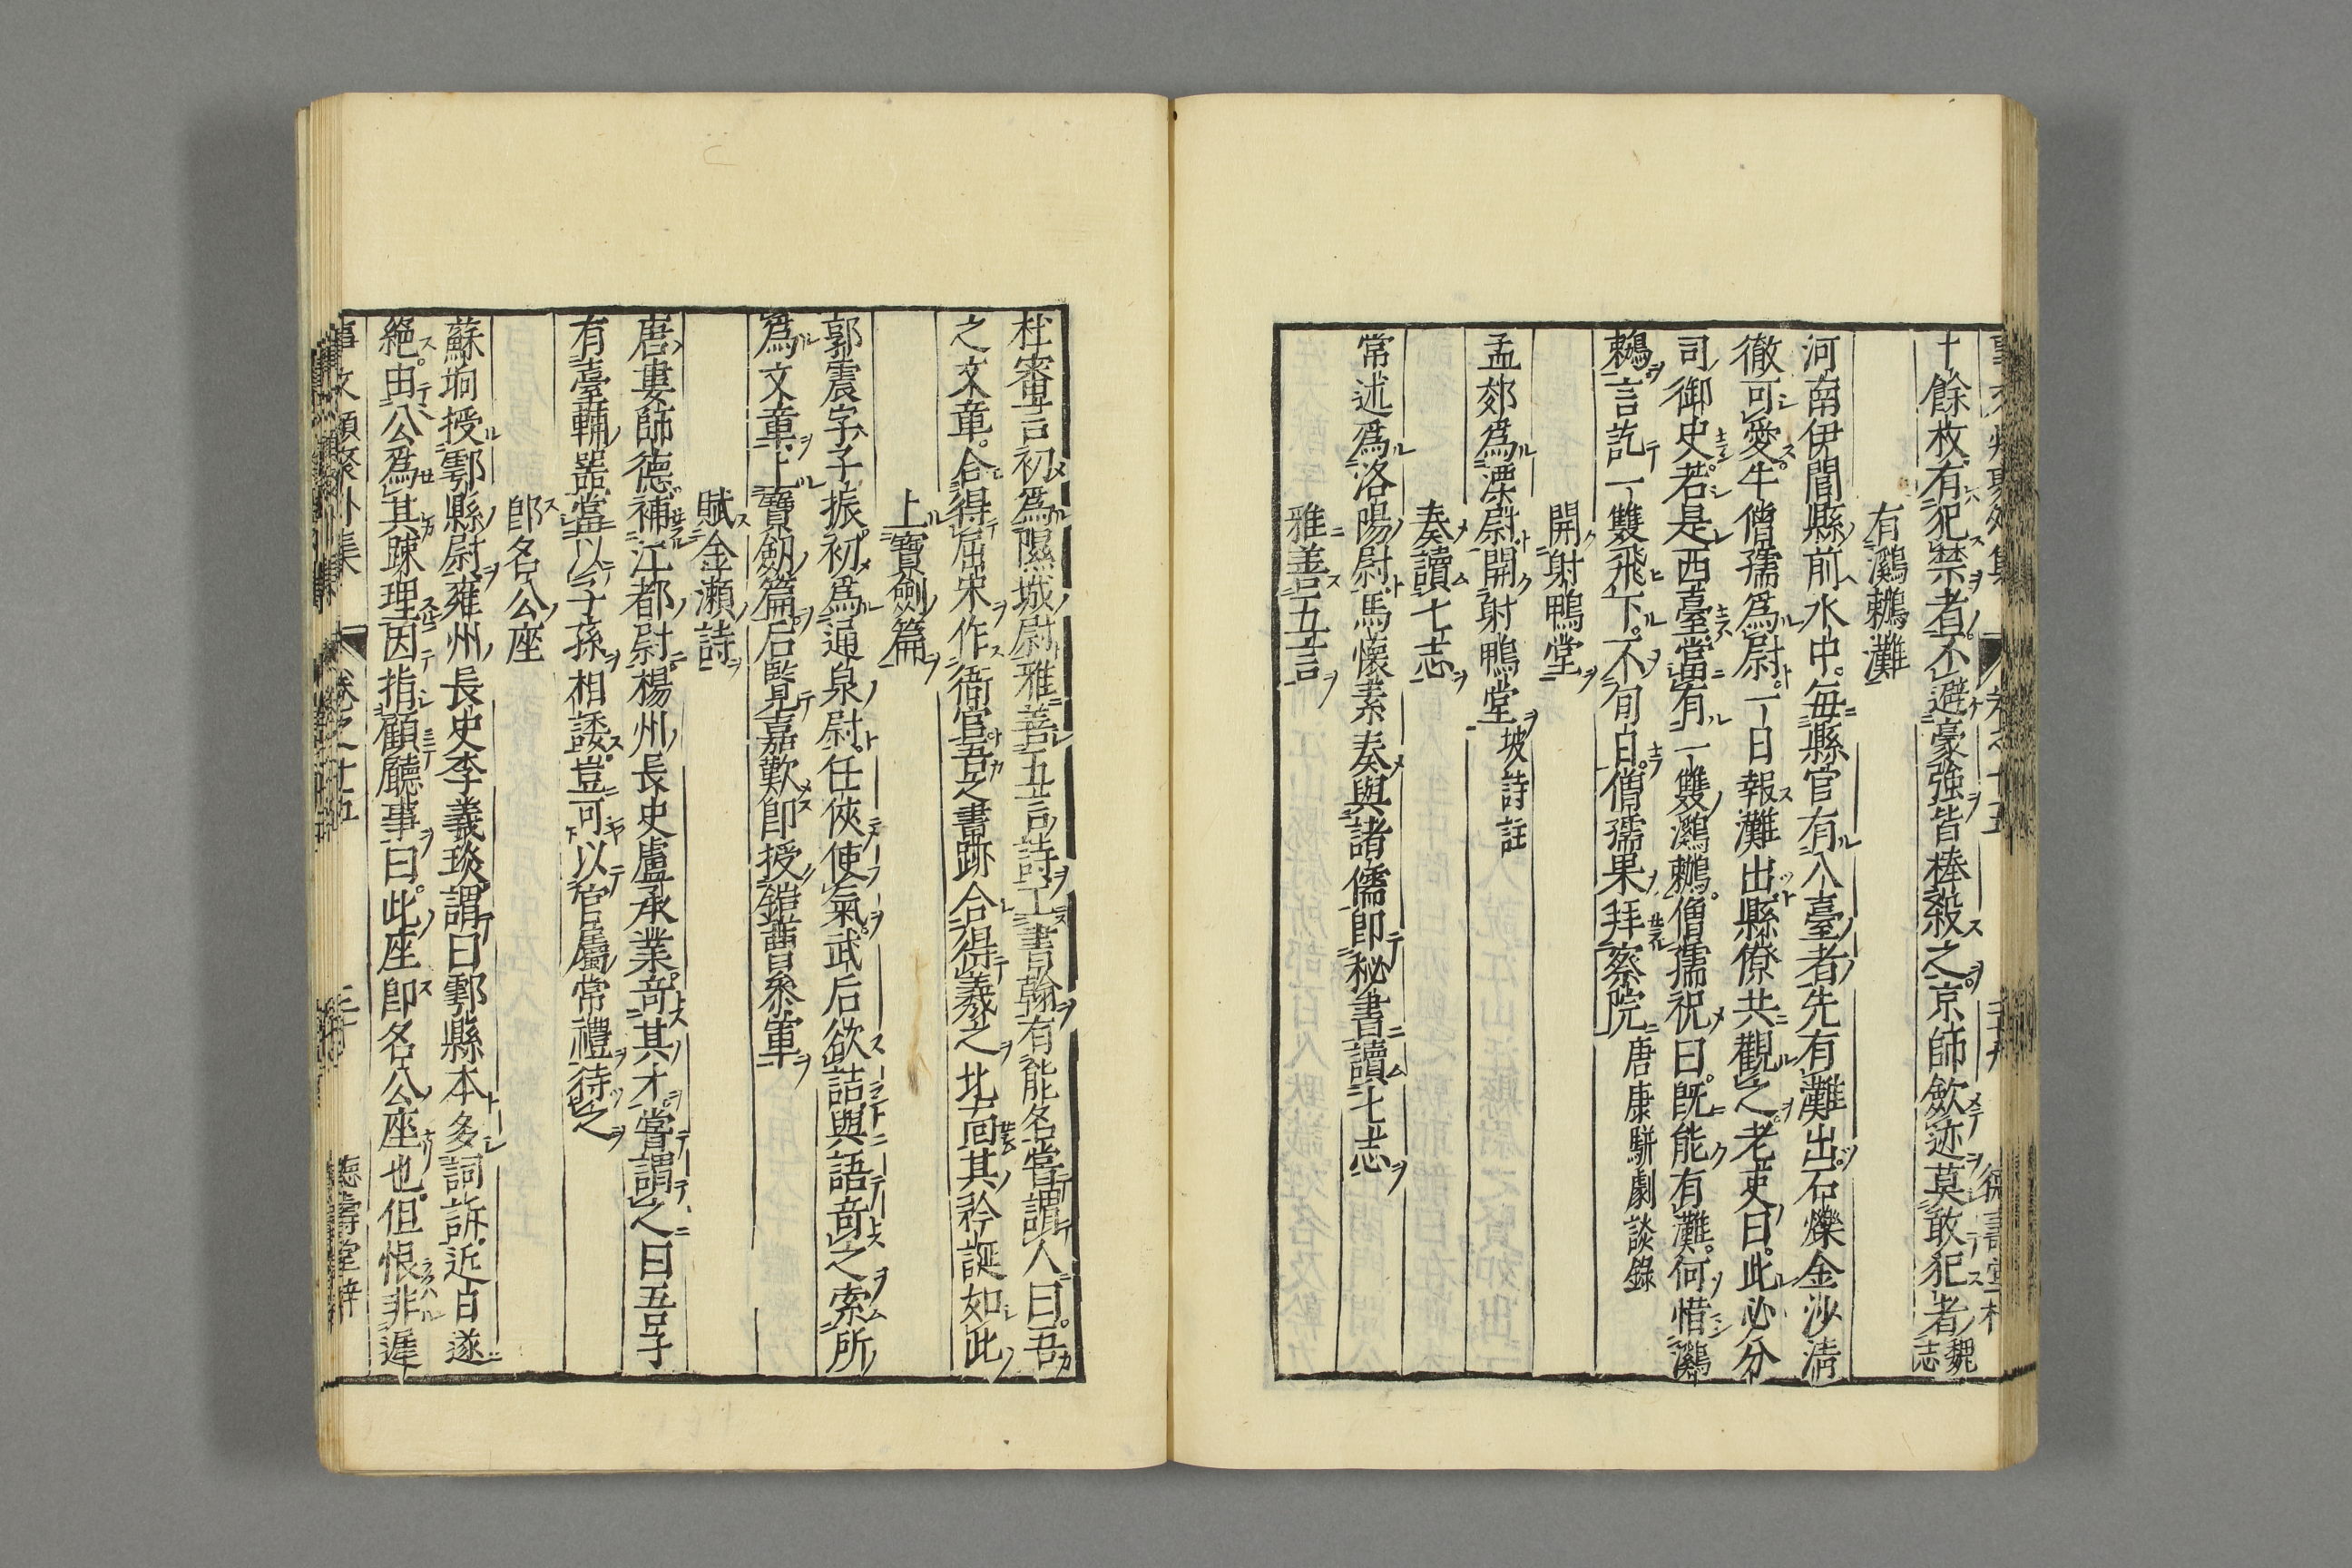 十餘枚有犯禁者不避豪強皆棒殺之京師斂迹莫敢犯者魏志
有鸂鶒灘
河南伊闕縣前水中每縣官有入臺者先有灘出石爍金沙清
徹可愛牛僧孺爲尉一日報灘出縣僚共觀之老吏曰此必分
司御史若是西臺當有一雙鸂鶒僧孺祝曰既能有灘何惜鸂
鶒言訖一雙飛下不旬日僧孺果拜察院唐康駢劇談錄
開射鴨堂
孟郊爲溧尉開射鴨堂坡詩註
奏讀七志
常述爲洛陽尉馬懷素奏與諸儒即秘書讀七志
雅善五言
杜審言初爲隰城尉雅善五言詩工書翰有能名嘗謂人曰吾
之文章合得屈宋作衙官吾之書跡合得羲之北面其矜誕如此
上寶劍篇
郭震字子振初爲通泉尉任俠使氣武后欲詰與語奇之索所
爲文章上寶劔篇后覽嘉歎即授鎧曹參軍
賦金瀬詩
唐婁師德補江都尉楊州長史盧承業奇其才嘗謂之曰吾子
有臺輔器當以子孫相諉豈可以官屬常禮待之
即名公座
蘇珦授鄠縣尉雍州長史李義琰謂曰鄠縣本多詞訴近日遂
絕由公爲其踈理因指顧廳事曰此座即名公座也但恨非遲
事文類聚外集 卷之十五 三十 德壽堂梓